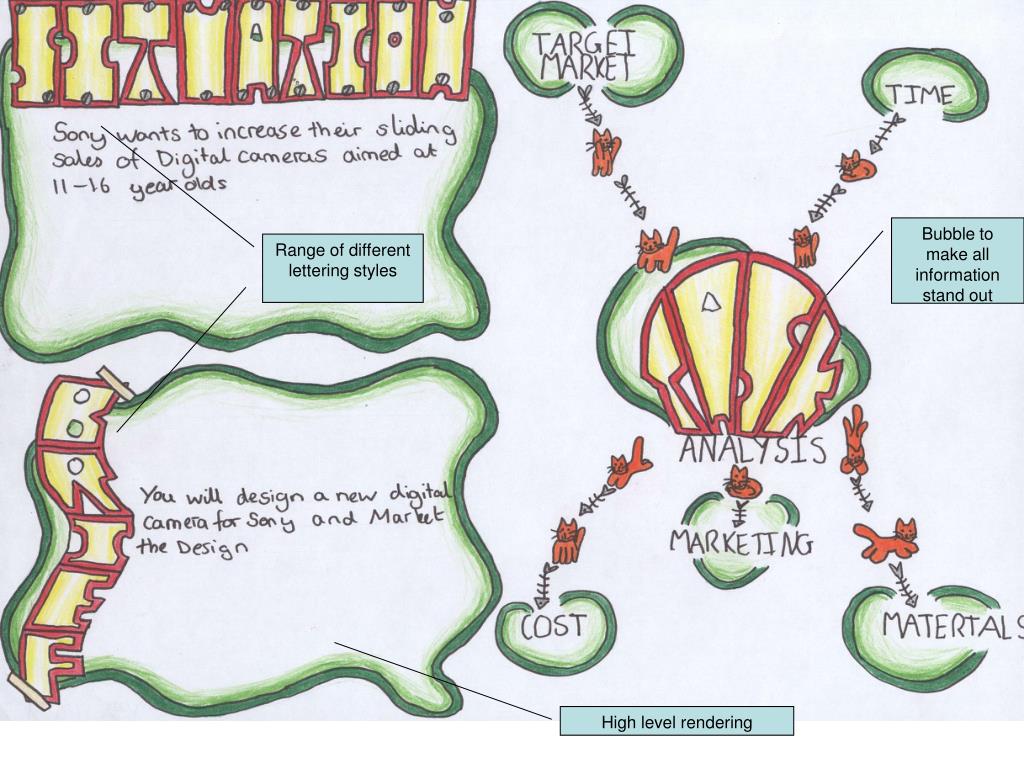 SITUATION
Sony wants to increase their sliding
sales of Digital cameras aimed at
11-16 year olds
Range of different
lettering styles
BRIEF
You will design a new digital
camera for Sony and Market
the Design
High level rendering
TARGET
MARKET
TIME
Bubble to
make all
information
stand out
ANALYSIS
MARKETING
COST
MATERIALS